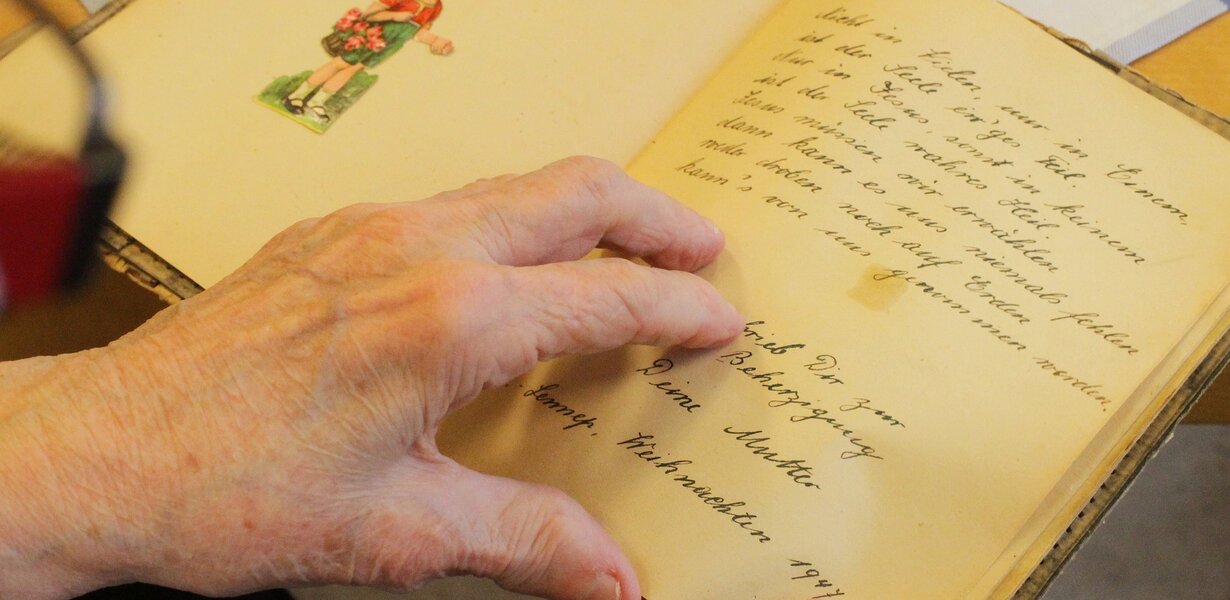 Nicht in Vielen, nur in Einem,
ist der Seele ew'ges Teil.
Nur in Jesus, sonst in keinem
ist der Seele wahres Heil
Jesus müssen wir erwählen
dann kann es uns niemals fehlen
weder droben noch auf Erden
kann's von uns genommen werden.
Dir zur
Beherzigung
Deine Mutter
Lennep, Weihnachten 1947